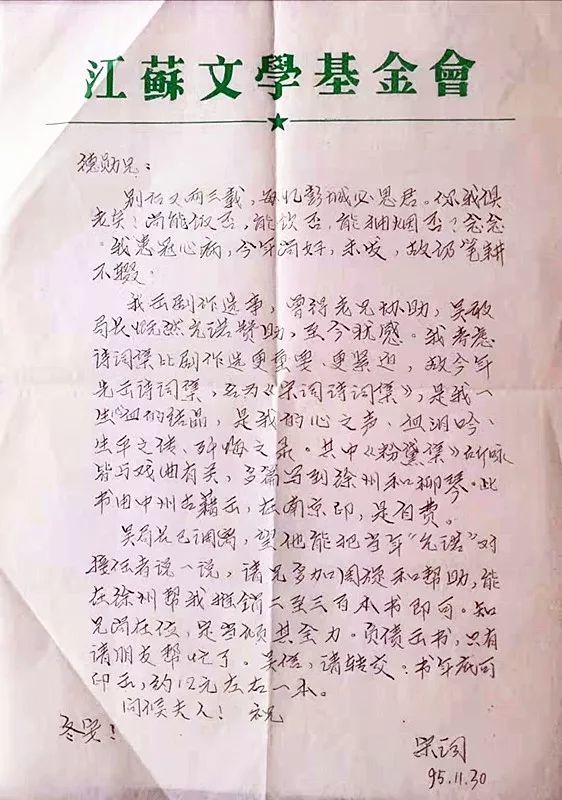 江蘇文學基金會
德勋兄：
别后又两三载，每忆彭城必思君。你我俱
老矣！尚能饭否，能饮否，能抽烟否？念念。
我患冠心病，今年尚好，未发，故仍笔耕
不辍。
我出剧作选事，曾得老兄协助，吴敢
局长慨然允诺赞助，至今犹感。我考虑
诗词集比剧作选更重要、更紧迫，故今年
先出诗词集，名为《宋词诗词集》，是我一
生心血的结晶，是我的心之声、血泪吟、
生平之传、忏悔之录。其中《粉黛集》所咏
皆与戏曲有关，多篇写到徐州和柳琴。此
书由中州古籍出，在南京印，是自费。
吴局长已调离，望他能把当年“允诺”对
接任者说一说，请兄多加周旋和帮助，能
在徐州帮我推销二至三百本书即可。知
兄尚在位，定当倾其全力。负债出书，只有
请朋友帮忙了。吴信，请转交。书年底可
印出，约12元左右一本。
问候夫人！祝
冬安！
宋词
95.11.30